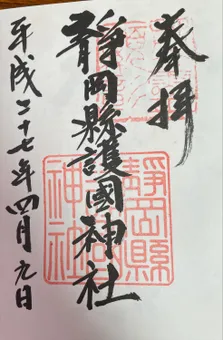 奉拝
靜岡縣護國神社
平成二十七年四月九日
靜岡縣
護國
神社